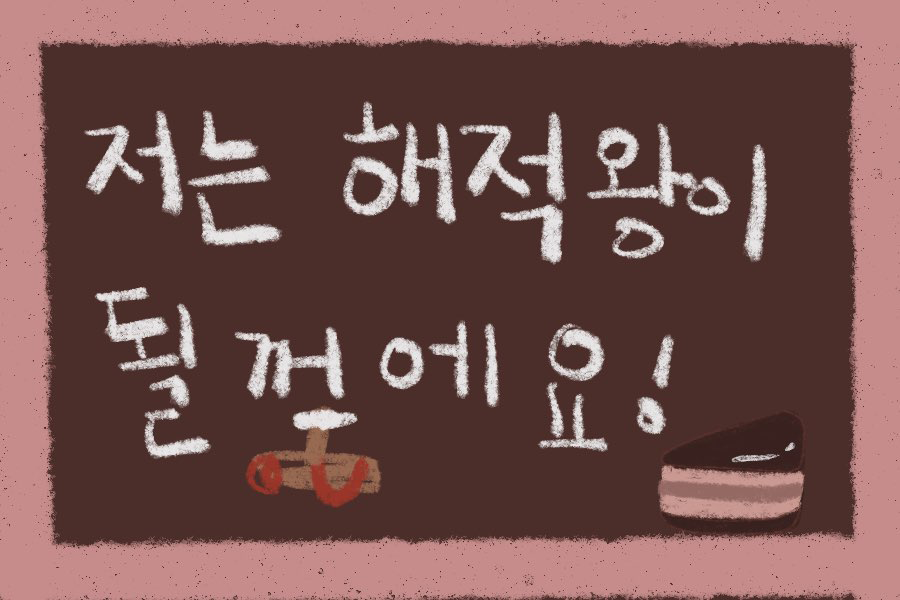 저는 해적왕이
될꺼에요!